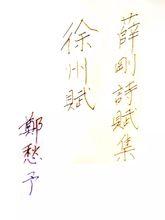 薛剛詩賦集
徐州賦
鄭愁予